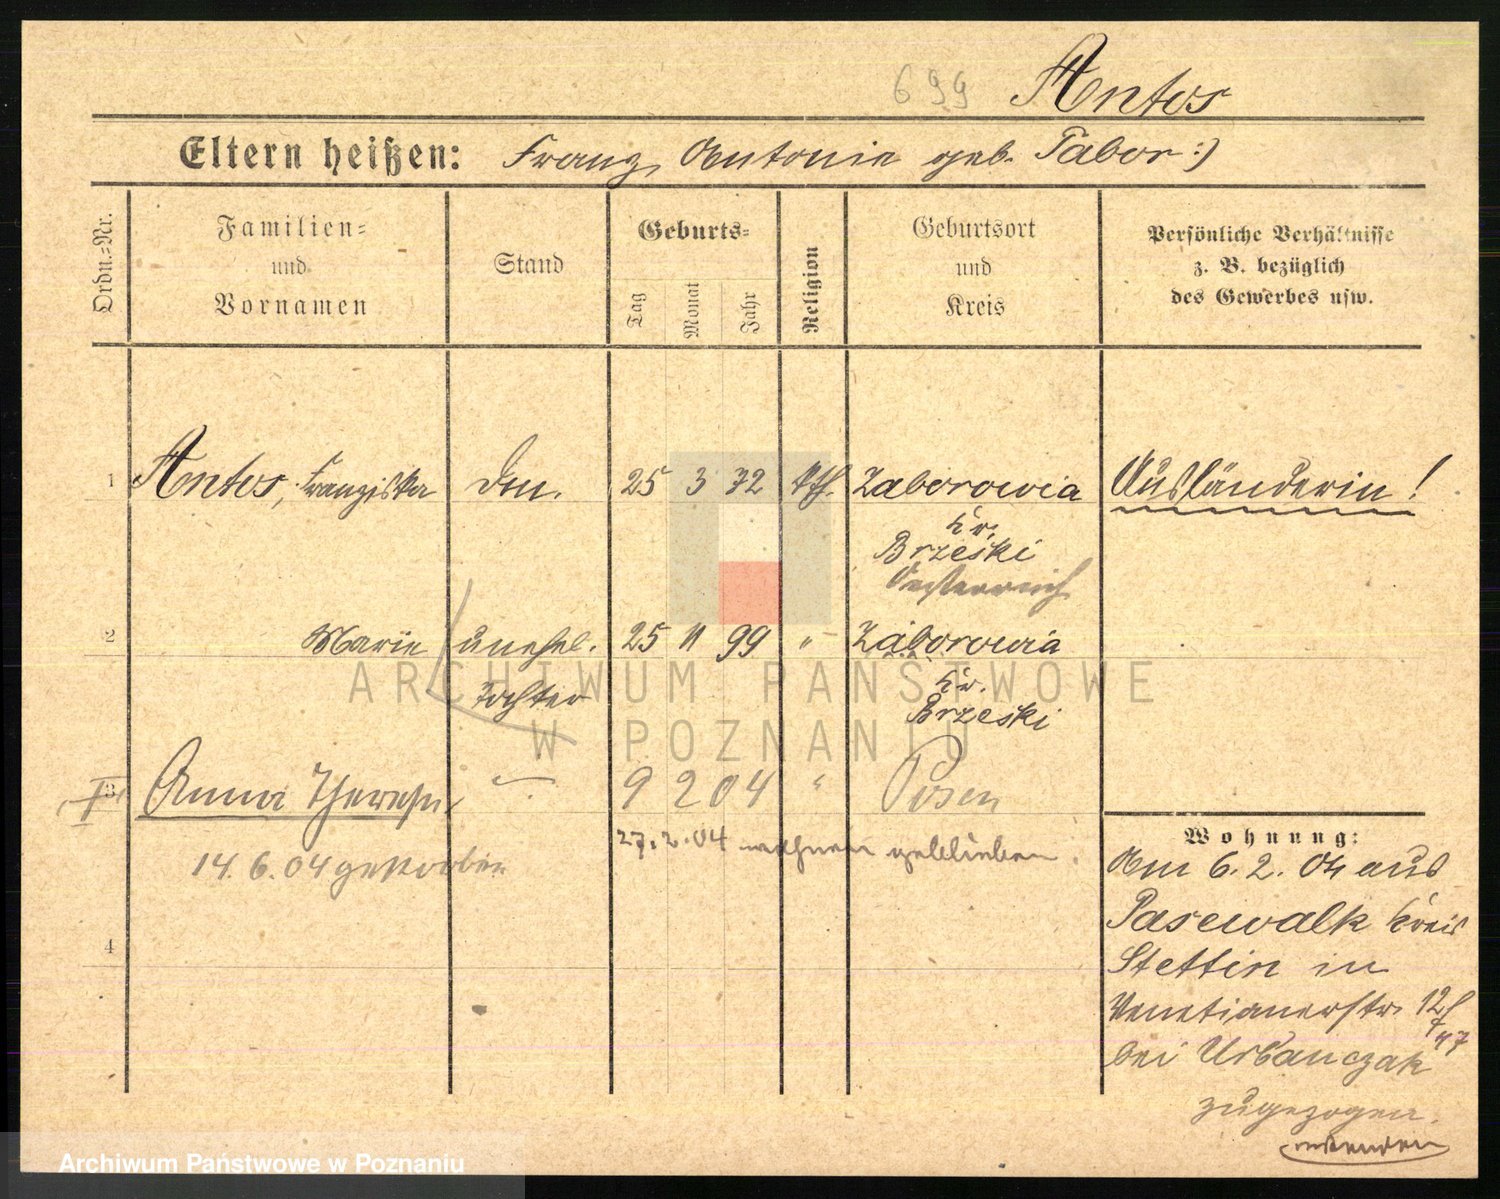 699 Antos
Eltern heißen: Franz, Antonie geb. Tabor :)
Ordn.-Nr.
Familien-
und
Vornamen
Stand
Geburts-
Tag
Monat
Jahr
Religion
Geburtsort
und
Kreis
Persönliche Verhältnisse
z. B. bezüglich
des Gewerbes usw.
1 Antos, Franziska 25 3 72 kth. Zaborowia Ausländerin!
Kr.
Brzeski
Oesterreich
2 Marie unehel. 25 11 99 " Zaborowia
Tochter
Kr.
Brzeski
3 Anna Theresia 9 2 04 " Posen
27.2.04 wohnen geblieben.
14.6.04 gestorben
4
Wohnung:
Am 6.2.04 aus
Pasewalk Kreis
Stettin in
Venetianerstr. 12
bei Urbanczak
zugezogen.
wenden
ARCHIWUM PAŃSTWOWE
W POZNANIU
Archiwum Państwowe w Poznaniu